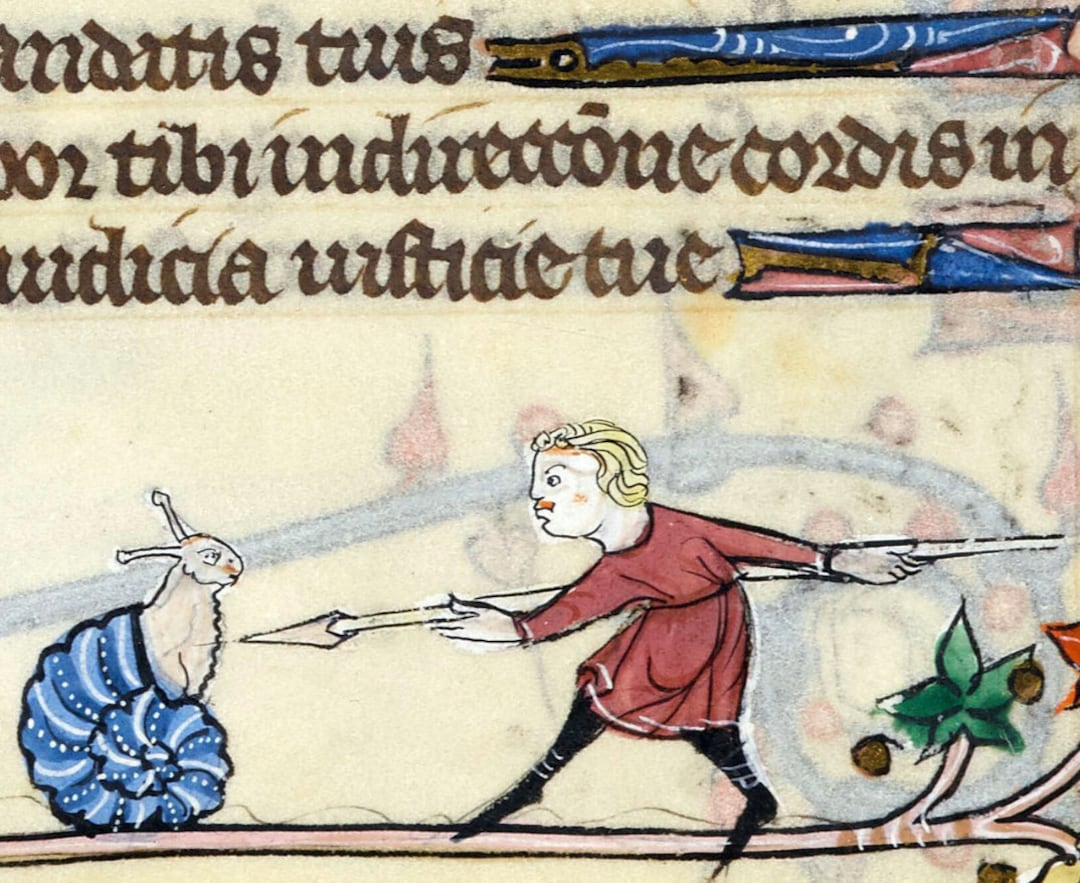 andatis tuis
bor tibi in directōne cordis in
iudicia iusticie tue